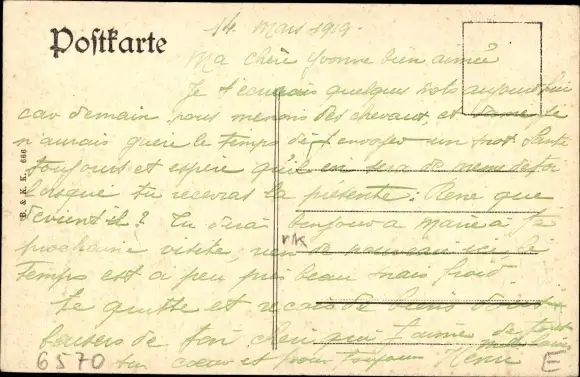 14 mars 1919.
Postkarte
Ma chère Yvonne bien aimée
Je t'écrais quelques mots aujourd'hui
car demain nous menons des chevaux, et je
n'aurais guère le temps de t'envoyer un mot
toujours et espère qu'il en sera de même de toi
lorsque tu recevras la présente. René que
devient-il? Tu dira bonjour a Marie a ta
prochaine visite, rien de nouveau ici, le
temps est a peu près beau mais froid.
Je quitte et reçois de biens doux
baisers de ton cheri qui t'aime de tout
son coeur et pour toujours Henri
B. & K. K. 666
6570
E